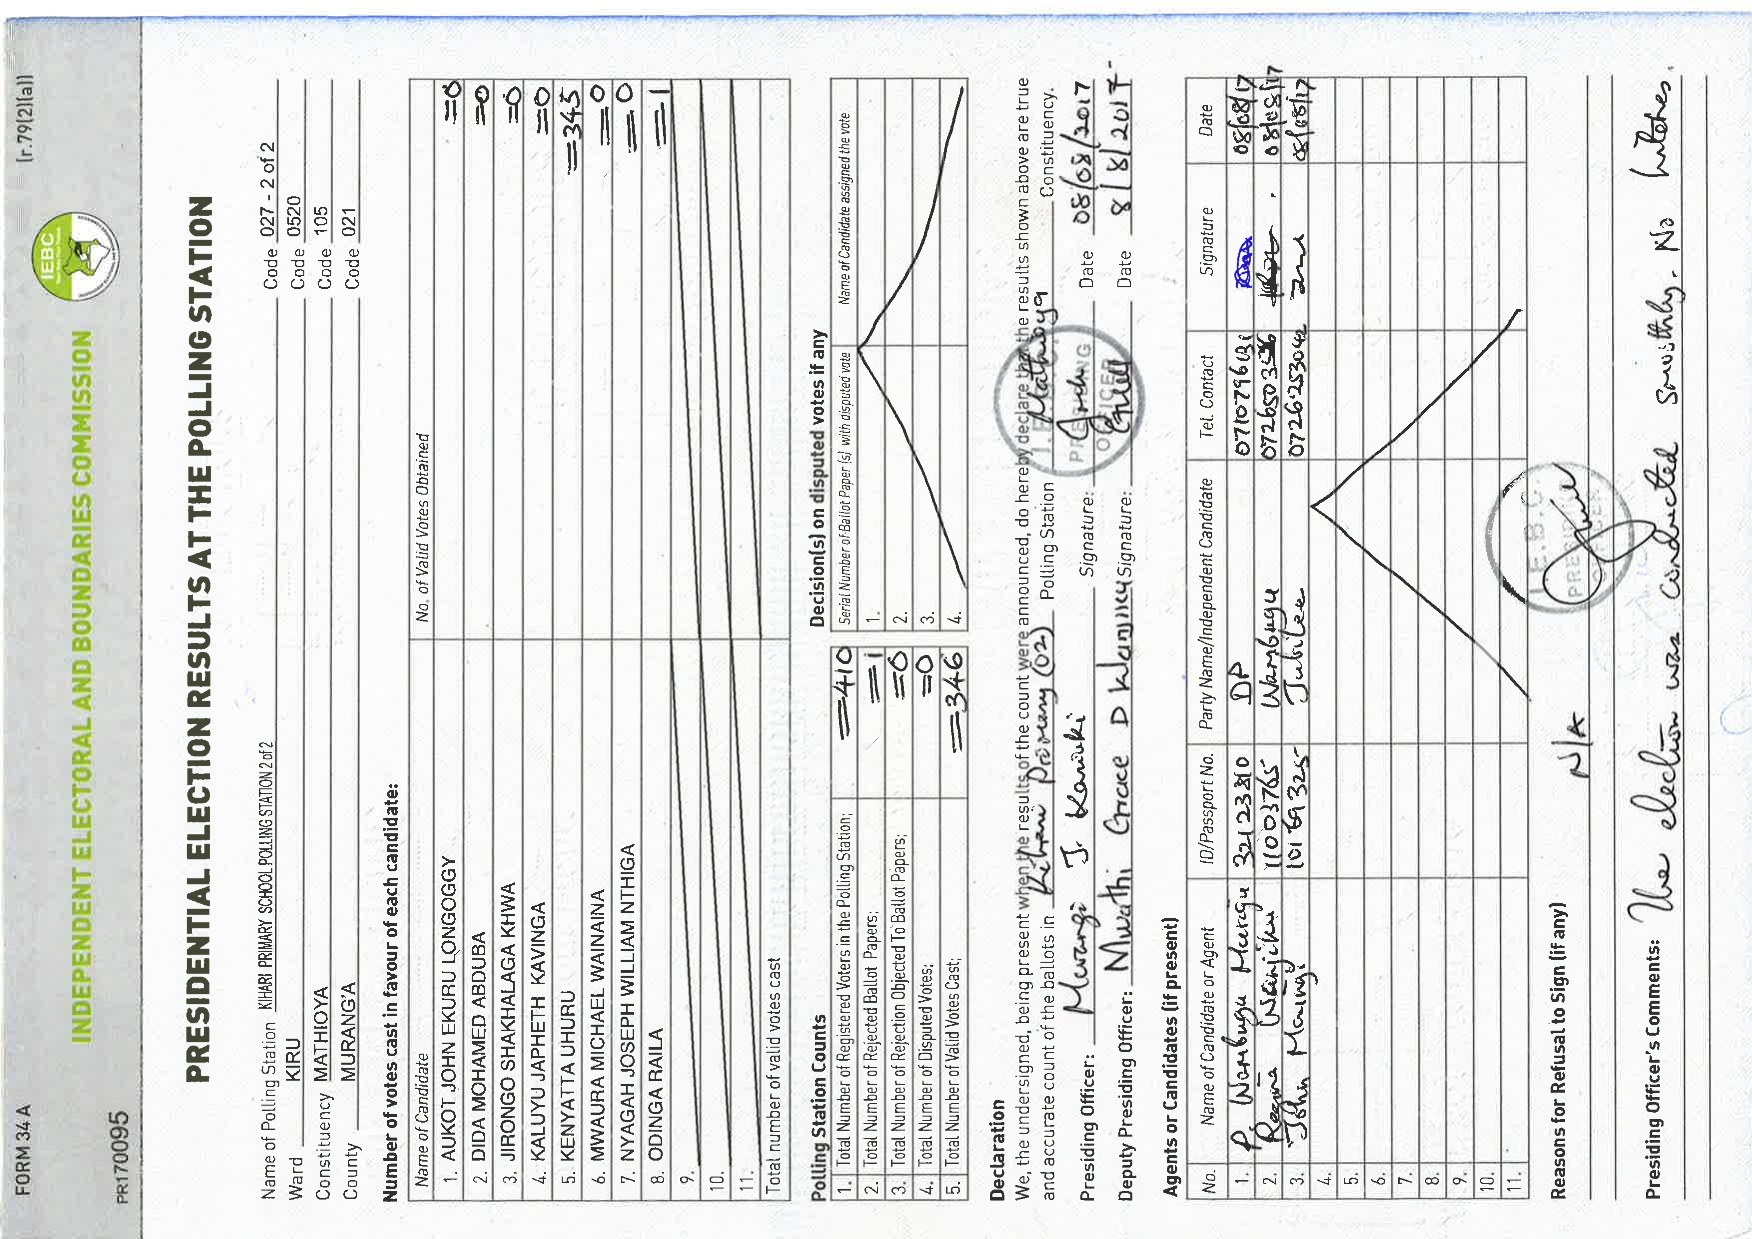 FORM 34 A
[r.79(2)(a)]
INDEPENDENT ELECTORAL AND BOUNDARIES COMMISSION
IEBC
PR170095
PRESIDENTIAL ELECTION RESULTS AT THE POLLING STATION
Name of Polling Station KIHARI PRIMARY SCHOOL POLLING STATION 2 of 2 Code 027 - 2 of 2
Ward KIRU Code 0520
Constituency MATHIOYA Code 105
County MURANG'A Code 021
Number of votes cast in favour of each candidate:
Name of Candidate No. of Valid Votes Obtained
1. AUKOT JOHN EKURU LONGOGGY =0
2. DIDA MOHAMED ABDUBA =0
3. JIRONGO SHAKHALAGA KHWA =0
4. KALUYU JAPHETH KAVINGA =0
5. KENYATTA UHURU =345
6. MWAURA MICHAEL WAINAINA =0
7. NYAGAH JOSEPH WILLIAM NTHIGA =0
8. ODINGA RAILA =1
9.
10.
11.
Total number of valid votes cast
Polling Station Counts
1. Total Number of Registered Voters in the Polling Station; =410
2. Total Number of Rejected Ballot Papers; =1
3. Total Number of Rejection Objected To Ballot Papers; =0
4. Total Number of Disputed Votes; =0
5. Total Number of Valid Votes Cast; =346
Decision(s) on disputed votes if any
Serial Number of Ballot Paper (s) with disputed vote Name of Candidate assigned the vote
1.
2.
3.
4.
Declaration
We, the undersigned, being present when the results of the count were announced, do hereby declare that the results shown above are true
and accurate count of the ballots in Kihari Primary (02) Polling Station Mathioya Constituency.
Presiding Officer: Mwangi J. Kariuki Signature: Date 08/08/2017
Deputy Presiding Officer: Mwathi Grace D Wanjiku Signature: Date 8/8/2017
I.E.B.C.
PRESIDING
OFFICER
Agents or Candidates (if present)
No. Name of Candidate or Agent ID/Passport No. Party Name/Independent Candidate Tel. Contact Signature Date
1. P. Wambugu Muraguri 32123810 DP 0710796131 08/08/17
2. Regina Wanjiku 11003765 Wambugu 08/08/17
3. John Maingi 10169325 Jubilee 0726253042 08/08/17
4.
5.
6.
7.
8.
9.
10.
11.
Reasons for Refusal to Sign (if any) N/A
I.E.B.C.
PRESIDING
OFFICER
Presiding Officer's Comments: The election was conducted smoothly. No hitches.